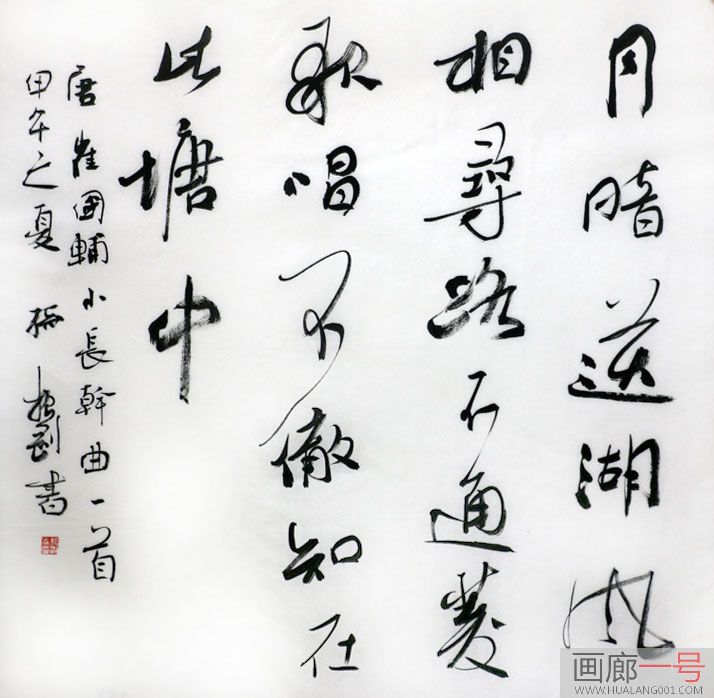 月暗送湖风
相尋路不通菱
歌唱不徹知在
此塘中
唐崔國輔小長幹曲一首
甲午之夏 梅 書
画廊一号
WWW.HUALANG001.COM